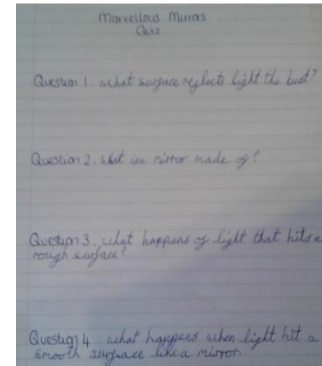 Marvellous Mirrors
Quiz
Question 1. what surface reflects light the best?
Question 2. What is a mirror made of?
Question 3. what happens of light that hits a
rough surface?
Question 4. what happens when light hit a
smooth surface like a mirror